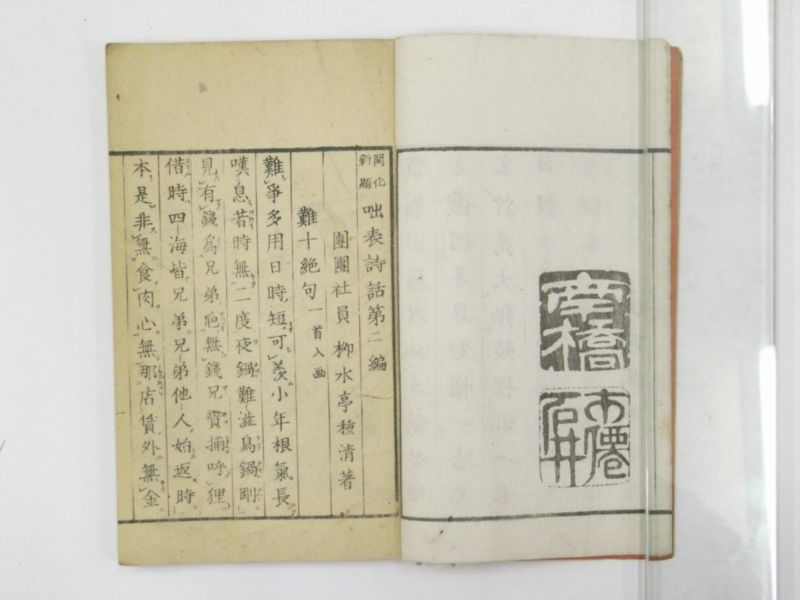 開化
新題
咄表詩話第二編
團團社員 柳水亭種清著
難十絕句一首入画
難爭多用日時短可羨小年根氣長
嘆息昔時無二度夜鍋難滋鳥鍋剛
見有錢為兄弟無錢兄賣捕呼狸
借時四海皆兄弟兄弟他人始返時
本是非無食肉心無那店賃外無金
南橋